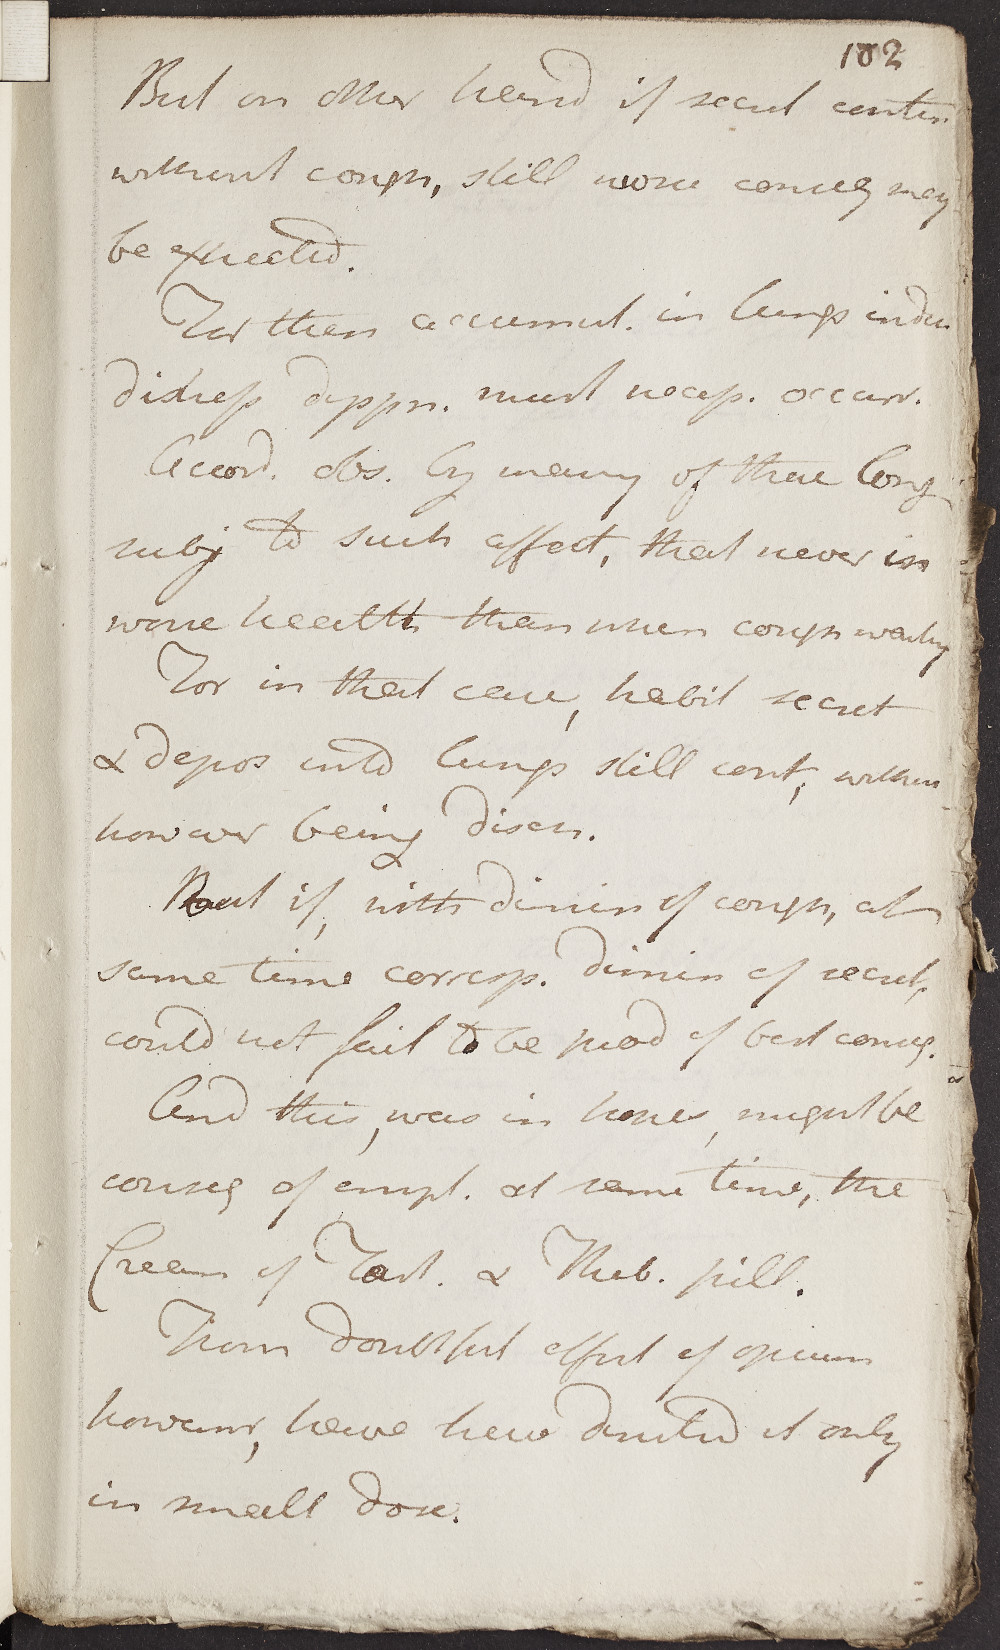 102
But on other hand if secret contin
without cough, still worse conseq may
be expected.
For then accumul. in lungs indu
distress dyspn. must necess. occurr.
Accord. obs. by many of those long
subj to such affect, that never in
worse health than when cough
For in that case, habit secret
& depos into lungs still cont, withou
however being disch.
But if, with dimin of cough, at
same time corresp. dimin of secret,
could not fail to be prod of best conseq.
And this, was in hopes, might be
conseq of empl. at same time, the
Cream of Tart. & Theb. pill.
From doubtful effect of opium
however, have here directed it only
in small dose.